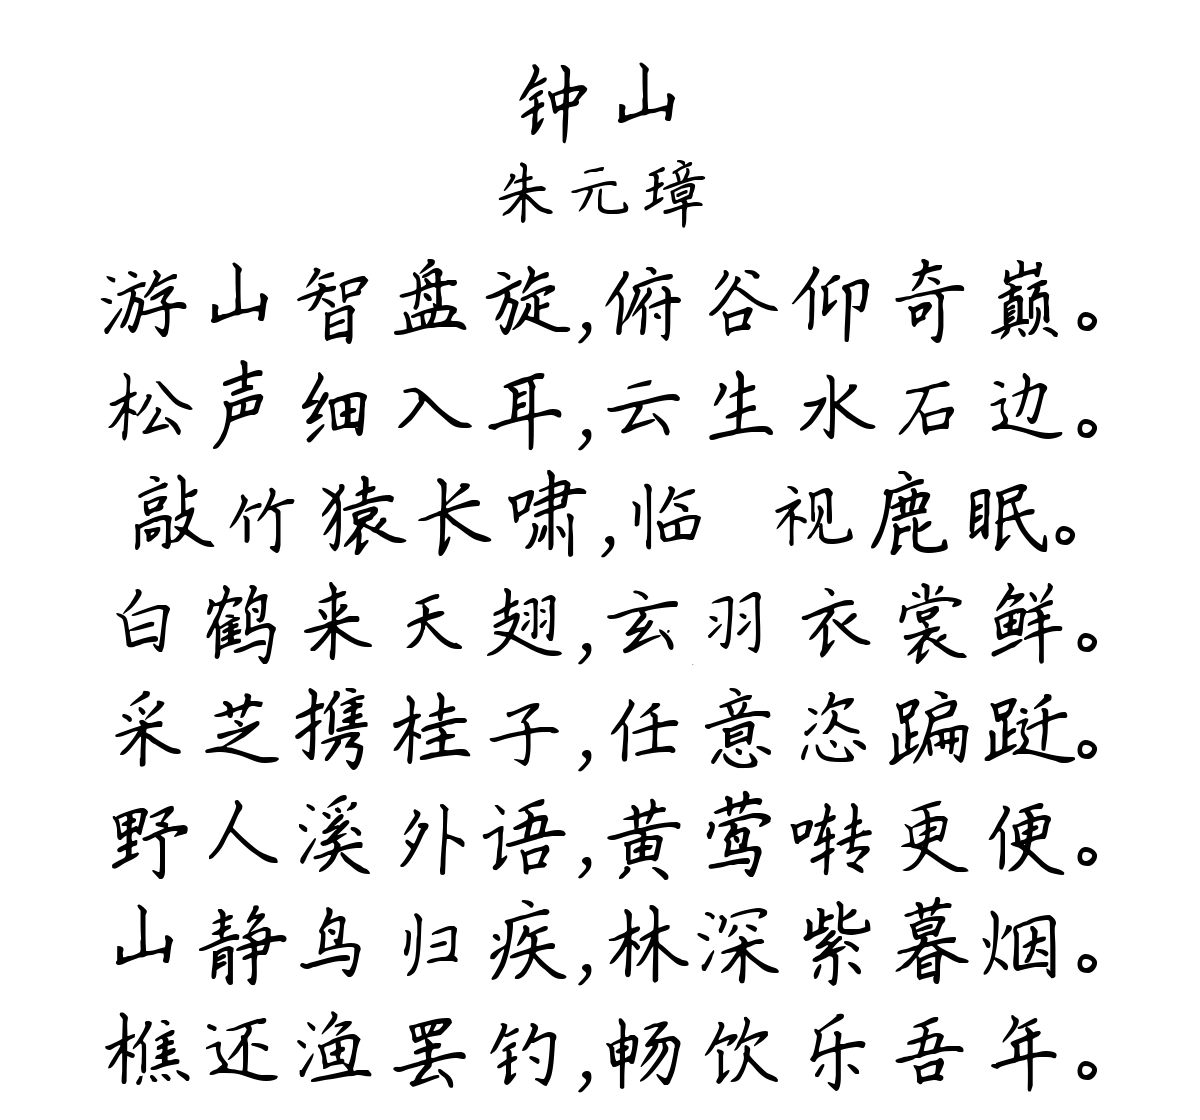 钟山
朱元璋
游山智盘旋,俯谷仰奇巅。
松声细入耳,云生水石边。
敲竹猿长啸,临 视鹿眠。
白鹤来天翅,玄羽衣裳鲜。
采芝携桂子,任意恣蹁跹。
野人溪外语,黄莺啭更便。
山静鸟归疾,林深紫暮烟。
樵还渔罢钓,畅饮乐吾年。